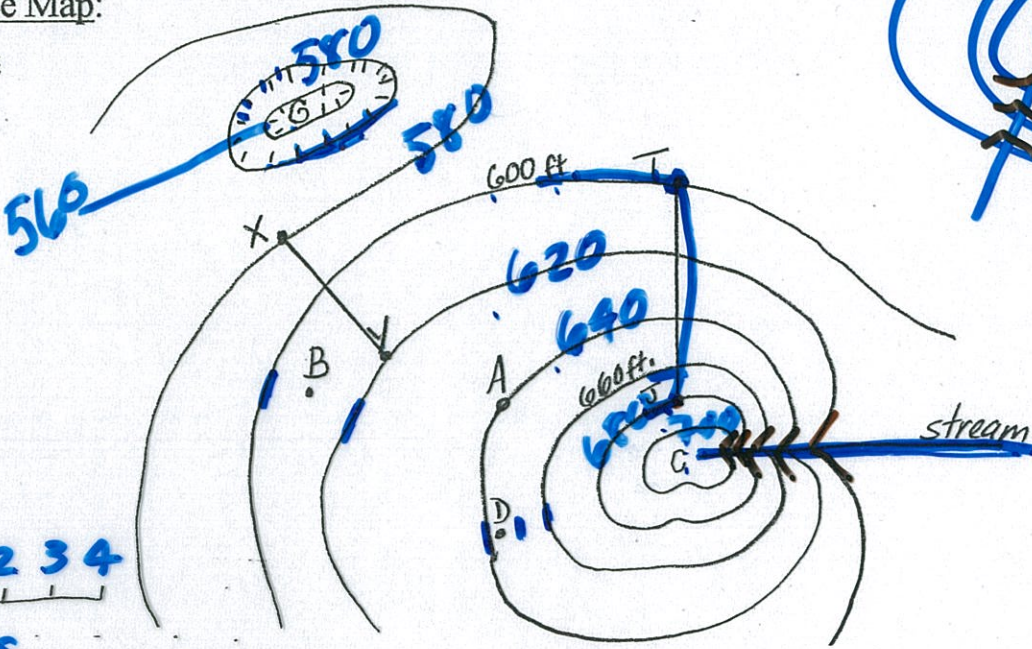 e Map:
580
G
580
560
600 ft
T
X
620
Y
640
B
A
660ft.
J
680
700
stream
C
D
2 3 4